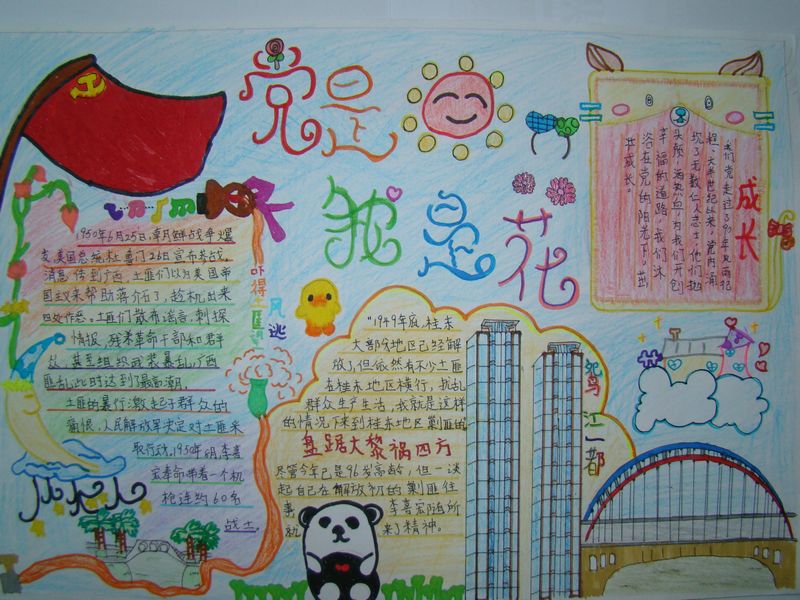 党是
我是花
成长
我们党走过了90年风雨历
程,大半世纪以来,党内涌
现了无数仁人志士,他们抛
头颅,洒热血,为我们开创
幸福的道路,我们沐
浴在党的阳光下,茁
壮成长。
1950年6月25日,朝鲜战争爆
发,美国总统杜鲁门26日宣布参战,
消息传到广西,土匪们以为美国帝
国主义来帮助蒋介石了,趁机出来
四处作恶。土匪们散布谣言,刺探
情报,残杀革命干部和群
众,甚至组织武装暴乱,广西
匪乱此时达到了最高潮。
土匪的暴行激起了群众的
痛恨,人民解放军决定对土匪采
取行动,1950年
宏奉命带着一个机
枪连约60名
战士,
吓得土匪
风逃
"1949年底,桂东
大部分地区已经解
放了,但依然有不少土匪
在桂东地区横行,扰乱
群众生产生活,我就是这样
的情况下来到桂东地区剿匪的
盘踞大黎祸四方
尽管今年已是96岁高龄,但一谈
起自己在解放初的剿匪往
事,李喜宏随所
就来了精神。
鸳江一都